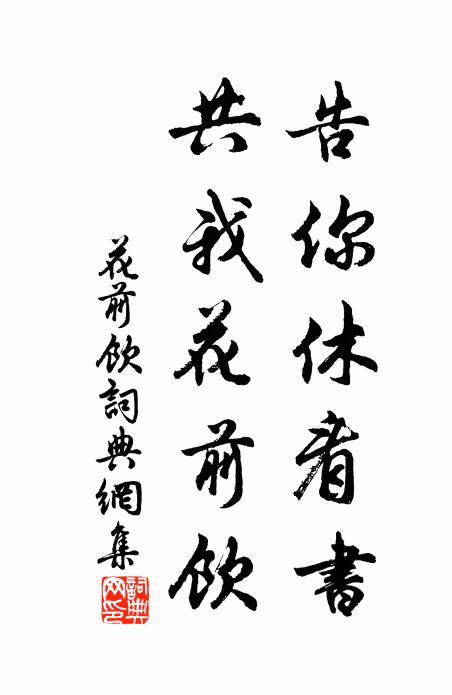 告你休看書
共我花前飲
花前飲詞典網集
詞典網印